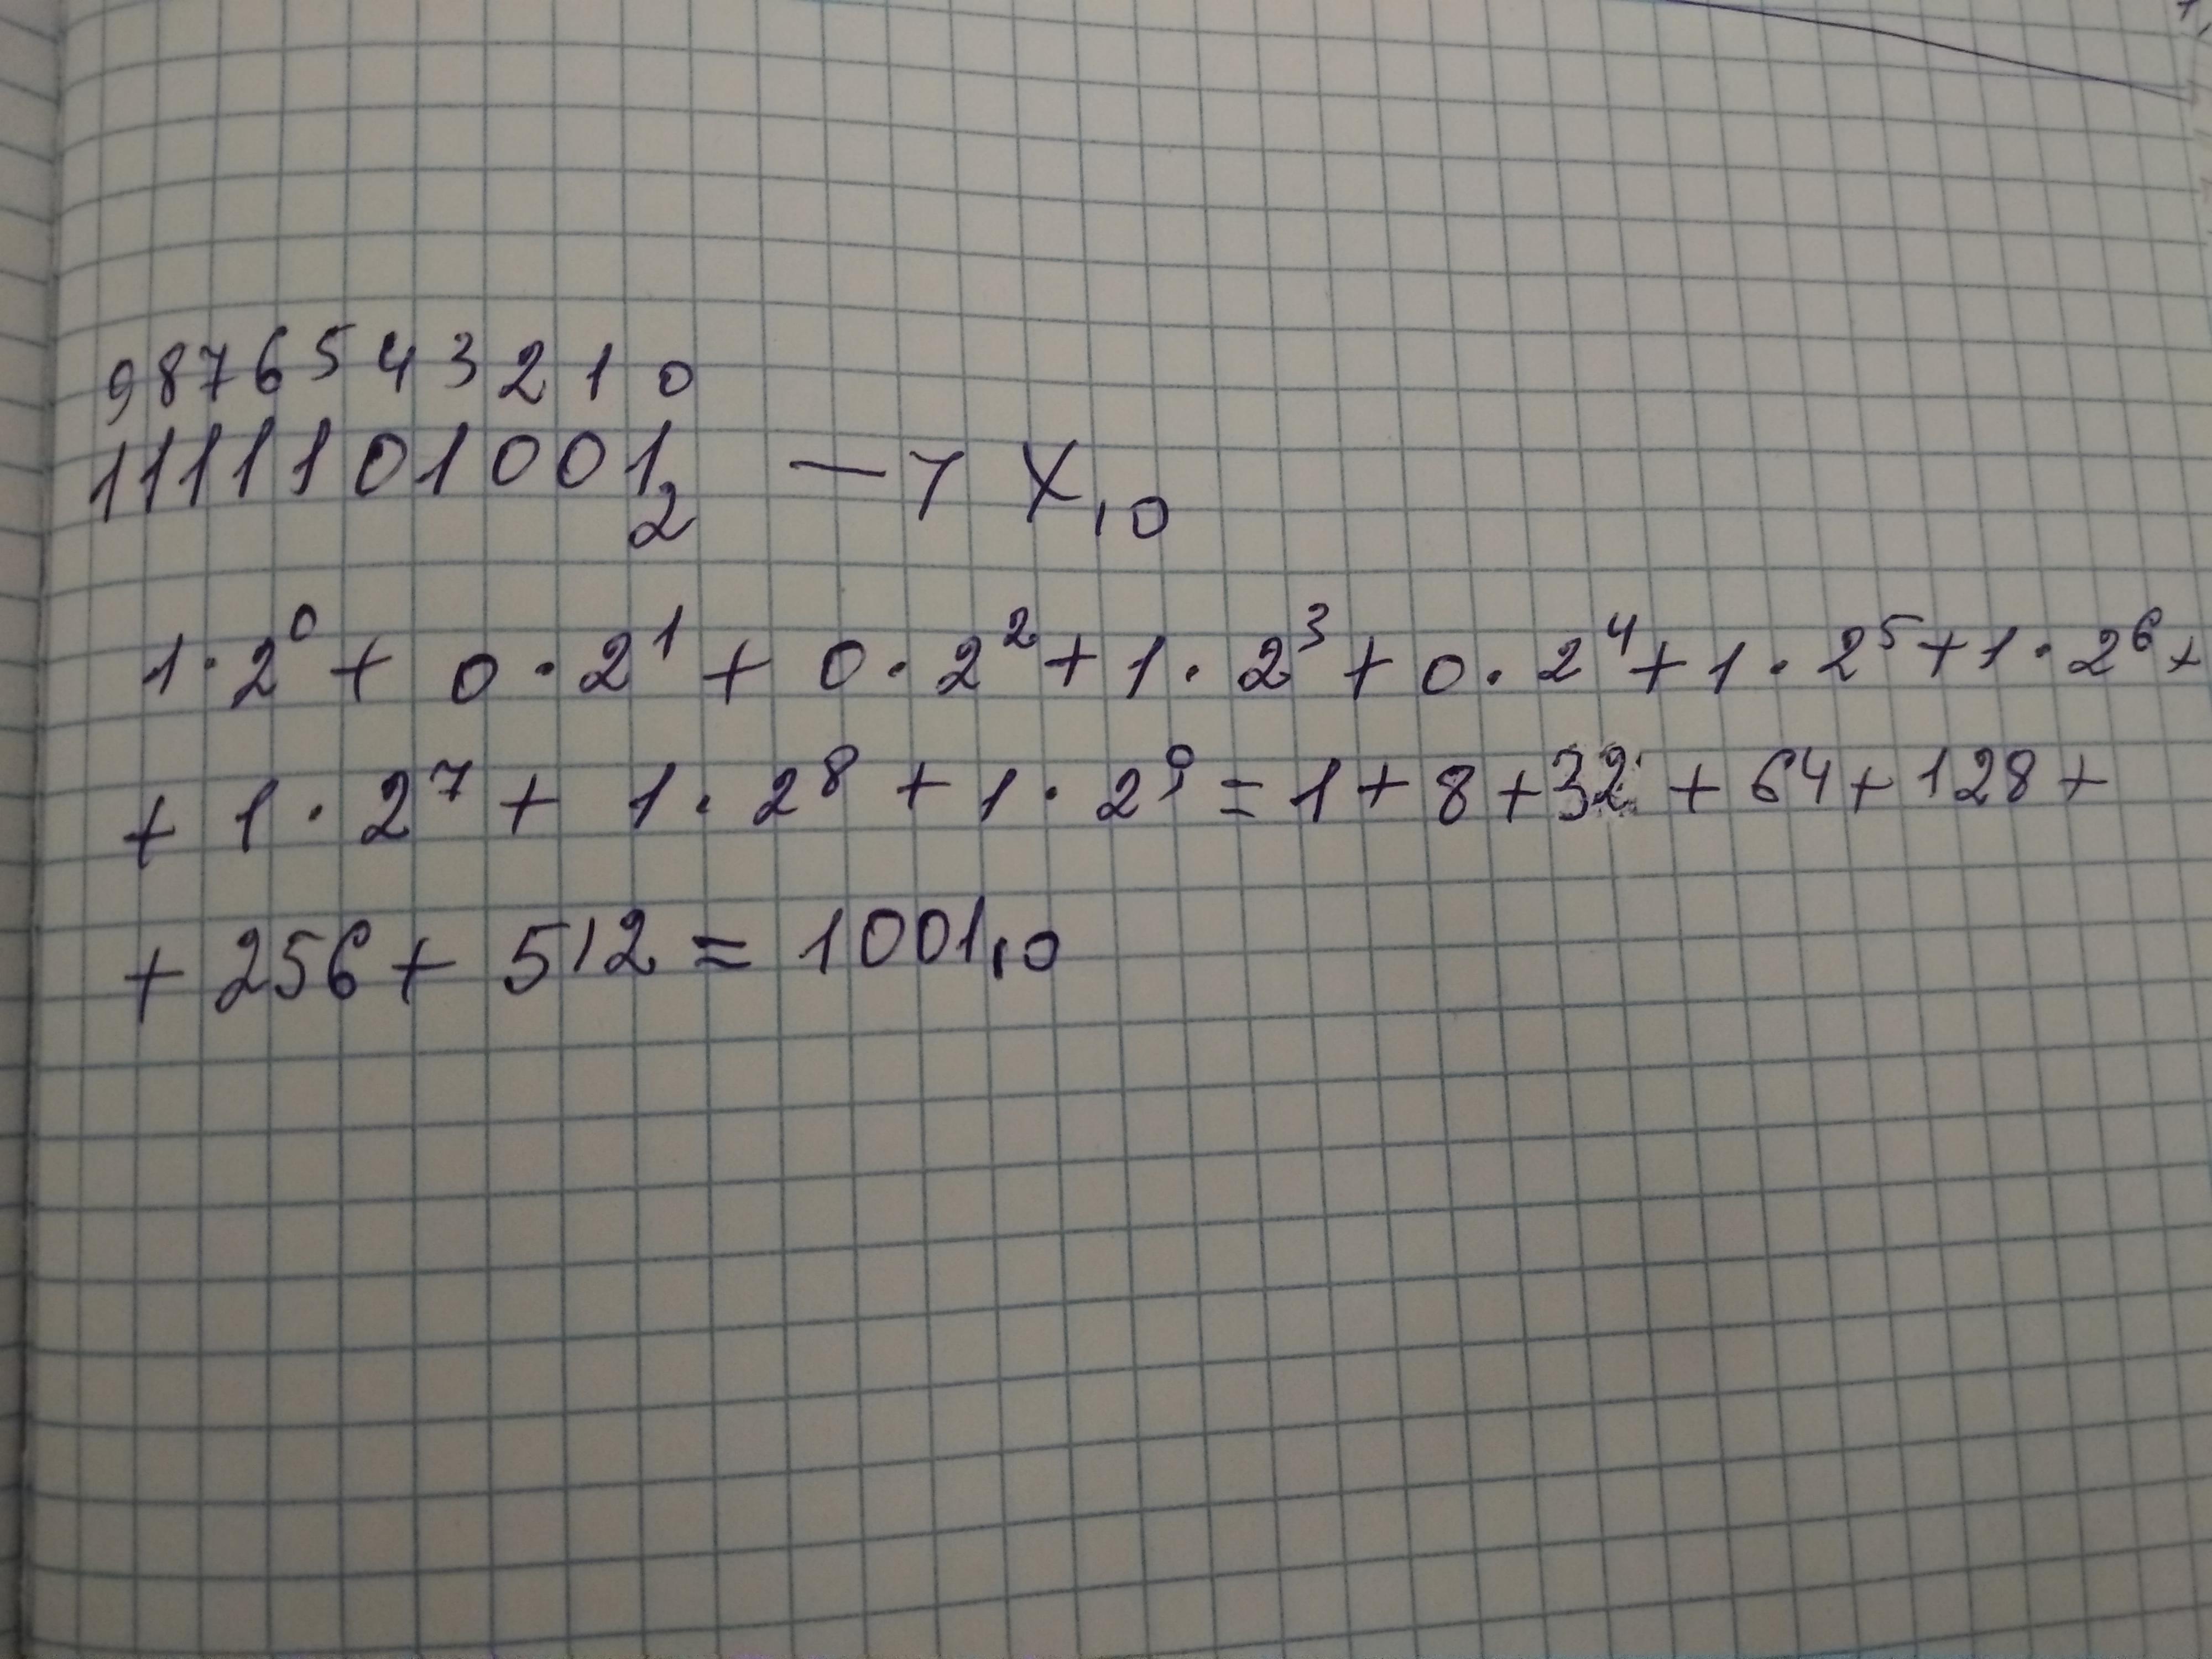 9 8 7 6 5 4 3 2 1 0
1111101001₂ → X₁₀
1·2⁰ + 0·2¹ + 0·2² + 1·2³ + 0·2⁴ + 1·2⁵ + 1·2⁶ +
+ 1·2⁷ + 1·2⁸ + 1·2⁹ = 1 + 8 + 32 + 64 + 128 +
+ 256 + 512 = 1001₁₀